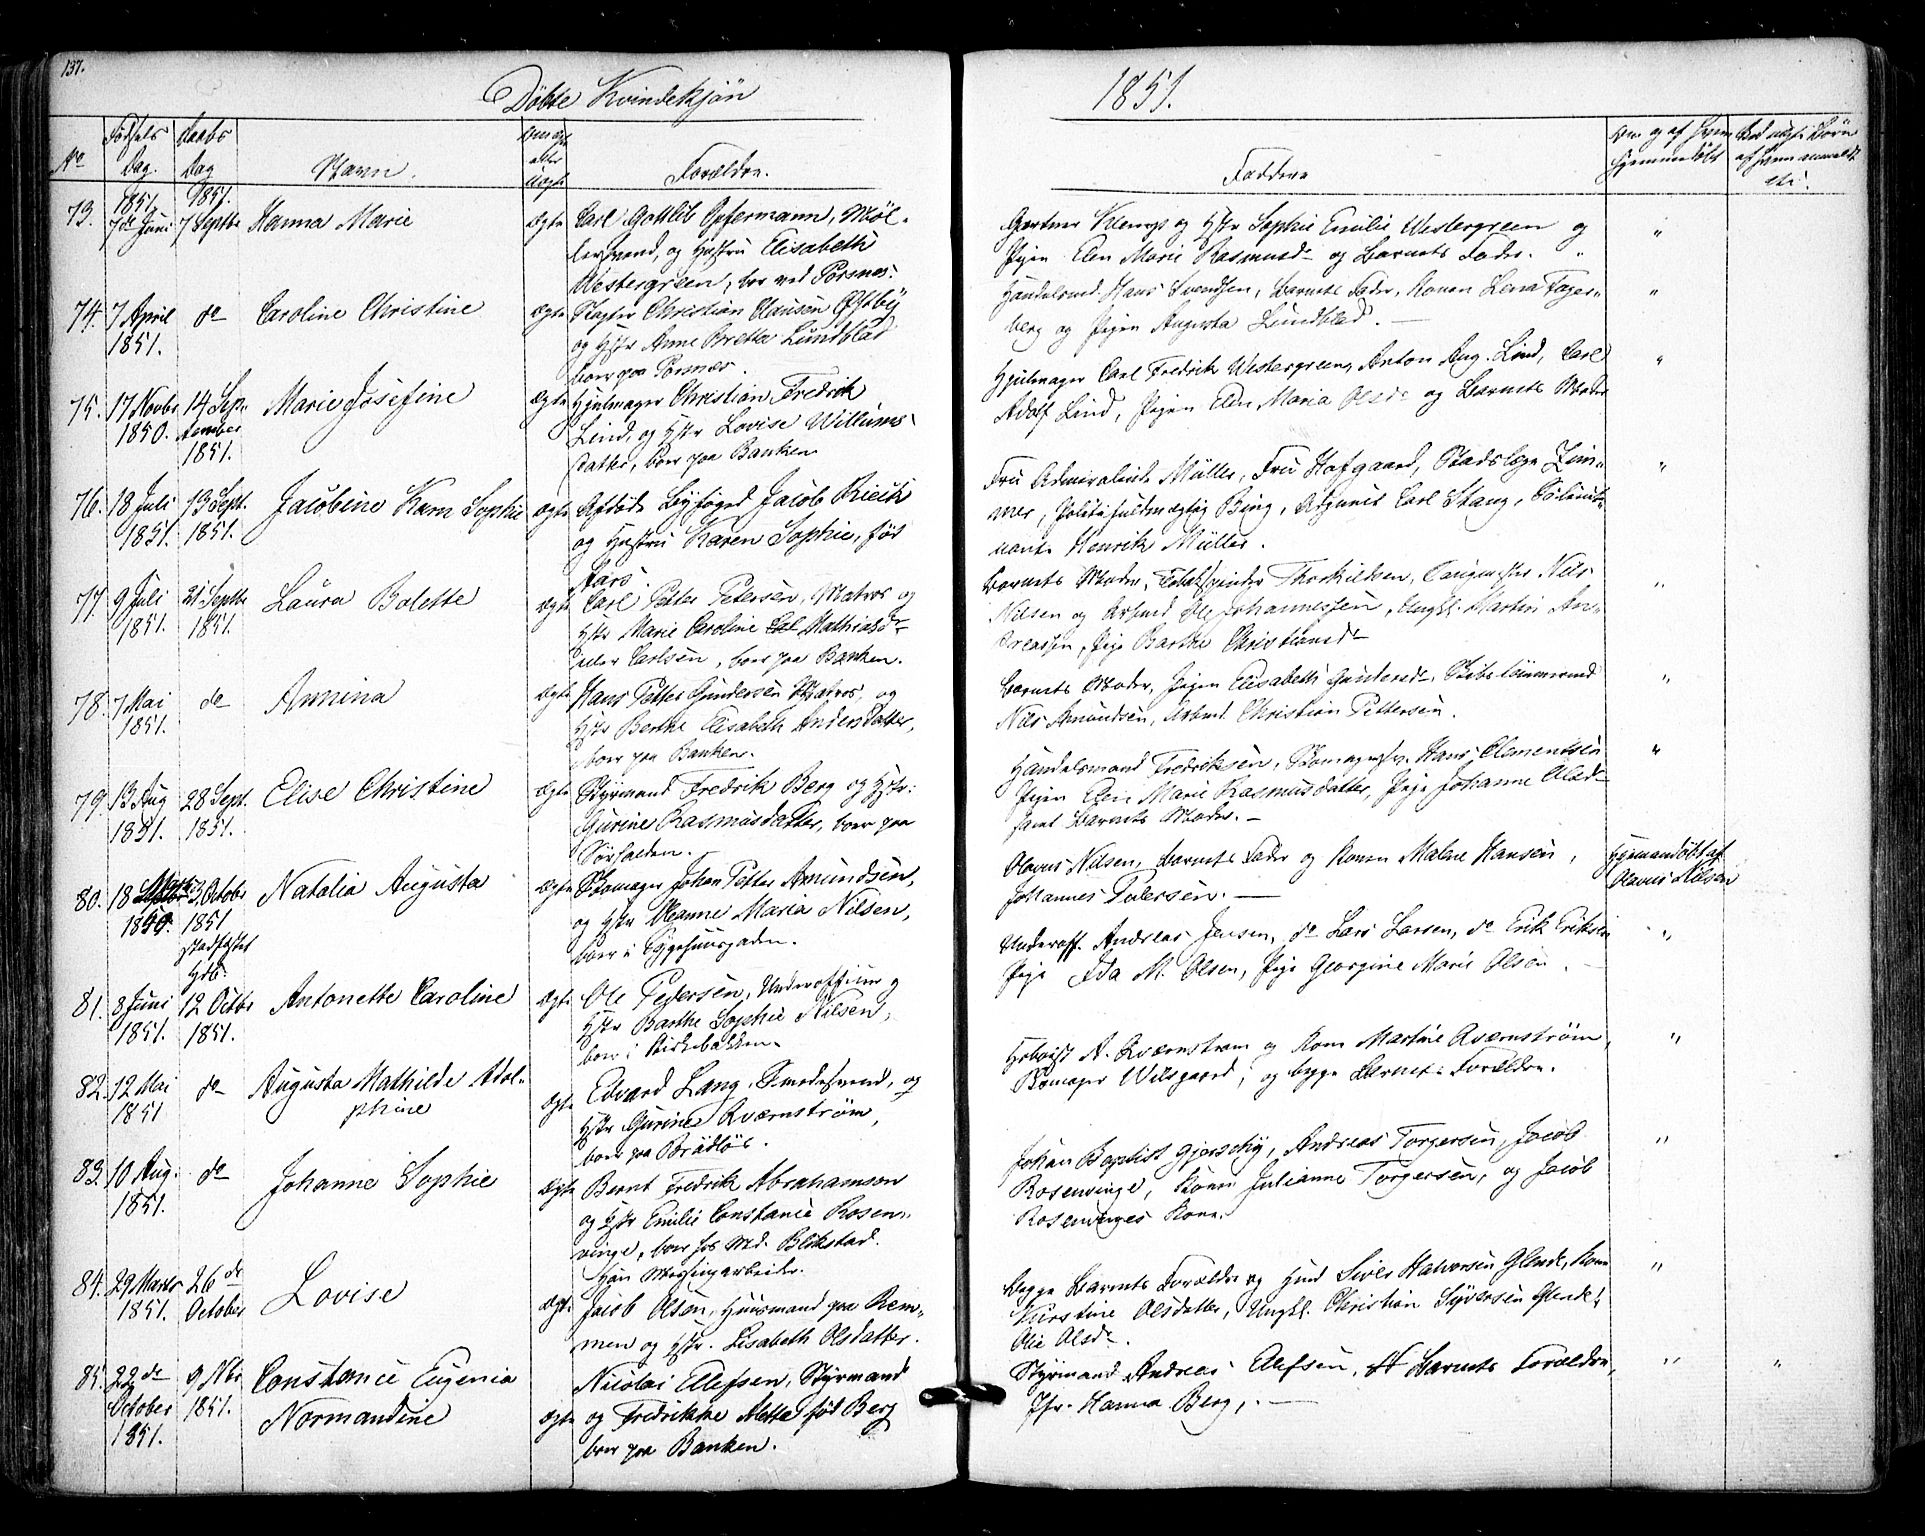 137.
Döbte Kvindekjön
1851.
No
Fødsels Dag.
Daabs Dag
Navn.
Om ægte eller uægte
Forældre.
Faddere
73. 1851 7de Juni 1851. 7 Septbr Hanna Marie ægte Carl Gottlib Opfermann, Møl-
lersvend, og Hustru Elisabeth
Westergreen, boer ved Porsnes.
Gartner Klemp og Hstr Sophie Emilie Westergreen og
Pigen Elen Marie Rasmusdr og Barnets Fader. "
74. 7 April 1851. do Caroline Christine ægte Slagter Christian Clausen Østbÿ
og Hstr Anne Bretta Lundblad
boer paa Porsnæs.
Handelsmd. Hans Svendsen, Barnets Fader, Konen Lena Fager-
berg og Pigen Augusta Lundblad. —
75. 17 Novbr 1850. 14 September 1851. Marie Josefine ægte Hjulmager Christian Fredrik
Lind, og Hstr Lovise Willums-
datter, boer paa Banken
Hjulmager Carl Fredrik Westergreen, Anton Aug. Lind, Carl
Adolf Lind, Pigen Elen Maria Olsdr og Barnets Moder
76. 18 Juli 1851. 13 Sept. 1851. Jacobine Karn Sophie ægte Afdøde Byfoged Jacob Rieck
og Hustru Karen Sophie, født
Lars.
Fru Admiralinde Müller, Fru Hofgaard, Stadslæge Zim-
mer, Politifuldmægtig Bing, Adjunct Carl Stang,
nant Henrik Müller.
77. 9 Juli 1851. 21 Septbr 1851. Laura Bolette ægte Carl Petter Petersen, Matros og
Hstr Marie Caroline Mathiasdr
eller Carlsen, boer paa Banken.
Barnets Moder, Tobakspinder Thorkildsen, Nils
Nilsen og Arbmd Ole Johannessen, Ungkl. Martin An-
dreassen, Pige Barthe Christiansdr
78. 7 Mai 1851. do Annina ægte Hans Petter Gundersen Matros, og
Hstr Berthe Elisabeth Andersdatter,
boer paa Banken.
Barnets Moder, Pigen Elisabeth Gundersdr, Skibstømmermd
Nils Amundsen, Arbmd. Christian Pettersen.
79. 13 Aug 1851. 28 Sept. 1851. Elise Christine ægte Styrmand Fredrik Berg og Hstr:
Gurine Rasmusdatter, boer paa
Sørhalden.
Handelsmand Fredriksen, Skomagersv. Hans Clementsen
Pigen Elen Marie Rasmusdatter, Pige Johanne Olsdr
samt Barnets Moder. —
80. 18 1850. 3 October 1851 stadfæstet Hdb. Natalia Augusta ægte Skomager Johan Petter Amundsen,
og Hstr Oleanne Maria Nilsen,
boer i Sygehuusgaden.
Olavus Nilsen, Barnets Fader og Konen Malene Hansen,
Johannes Pedersen. —
Hjemmedöbt af
Olavus Nilsen
81. 8 Juni 1851. 12 Octbr 1851. Antonette Caroline ægte Ole Pedersen, Underofficier og
Hstr Barthe Sophie Nilsen,
boer i Kirkebakken.
Underoff. Andreas Jensen, do Lars Larsen, do Erik Eriksen
Pige Ida M. Olsen, Pige Georgine Marie Olsen. —
82. 12 Mai 1851 do Augusta Mathilde Adol-
phine ægte Edvard Lang, Smedesvend, og
Hstr Gurine Kværnstrøm,
boer paa Brødløs.
A. Kværnstrøm og Kone Martine Kværnstrøm,
Skomager Wilsgaard, og begge Barnets Forældre.
83. 10 Aug. 1851. do Johanne Sophie ægte Bernt Fredrik Abrahamson
og Hstr Emilie Constance Rosen-
vinge, boer hos Md. Blikstad.
Han Messingarbeider.
Johan Baptist Andreas Torgersen, Jacob
Rosenvinge, Konen Julianne Torgersen, og Jacob
Rosenvinges Kone.
84. 29 Marts 1851. 26de October Lovise ægte Jacob Olsen, Huusmand paa Rem-
men og Hstr. Lisabeth Olsdatter.
Begge Barnets Forældre og Husmd Siver Halvorsen Glende, Kone
Kirstine Olsdatter, Ungkl. Christian Syversen Glende,
Olie Olsdr.
85. 22de October 1851. 9 Nbr 1851. Constance Eugenia
Normandine ægte Nicolai Ellefsen, Styrmand
og Fredrikke Mette født Berg
boer paa Banken.
Styrmand Andreas Ellefsen, Barnets Forældre,
Jfr. Hanna Berg, —